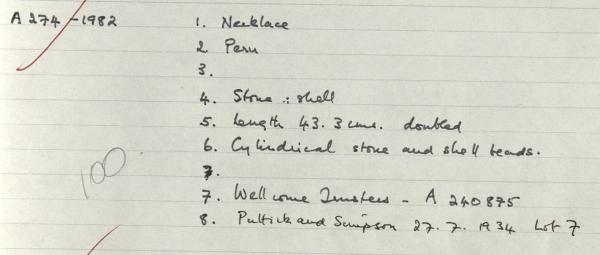 A 274-1982 1. Necklace
2 Peru
3.
4. Stone : shell
5. Length 43.3 cms. doubled
6. Cylindrical stone and shell beads.
7.
100
7. Wellcome Trustees - A 240875
8. Puttick and Simpson 27.7.1934 Lot 7